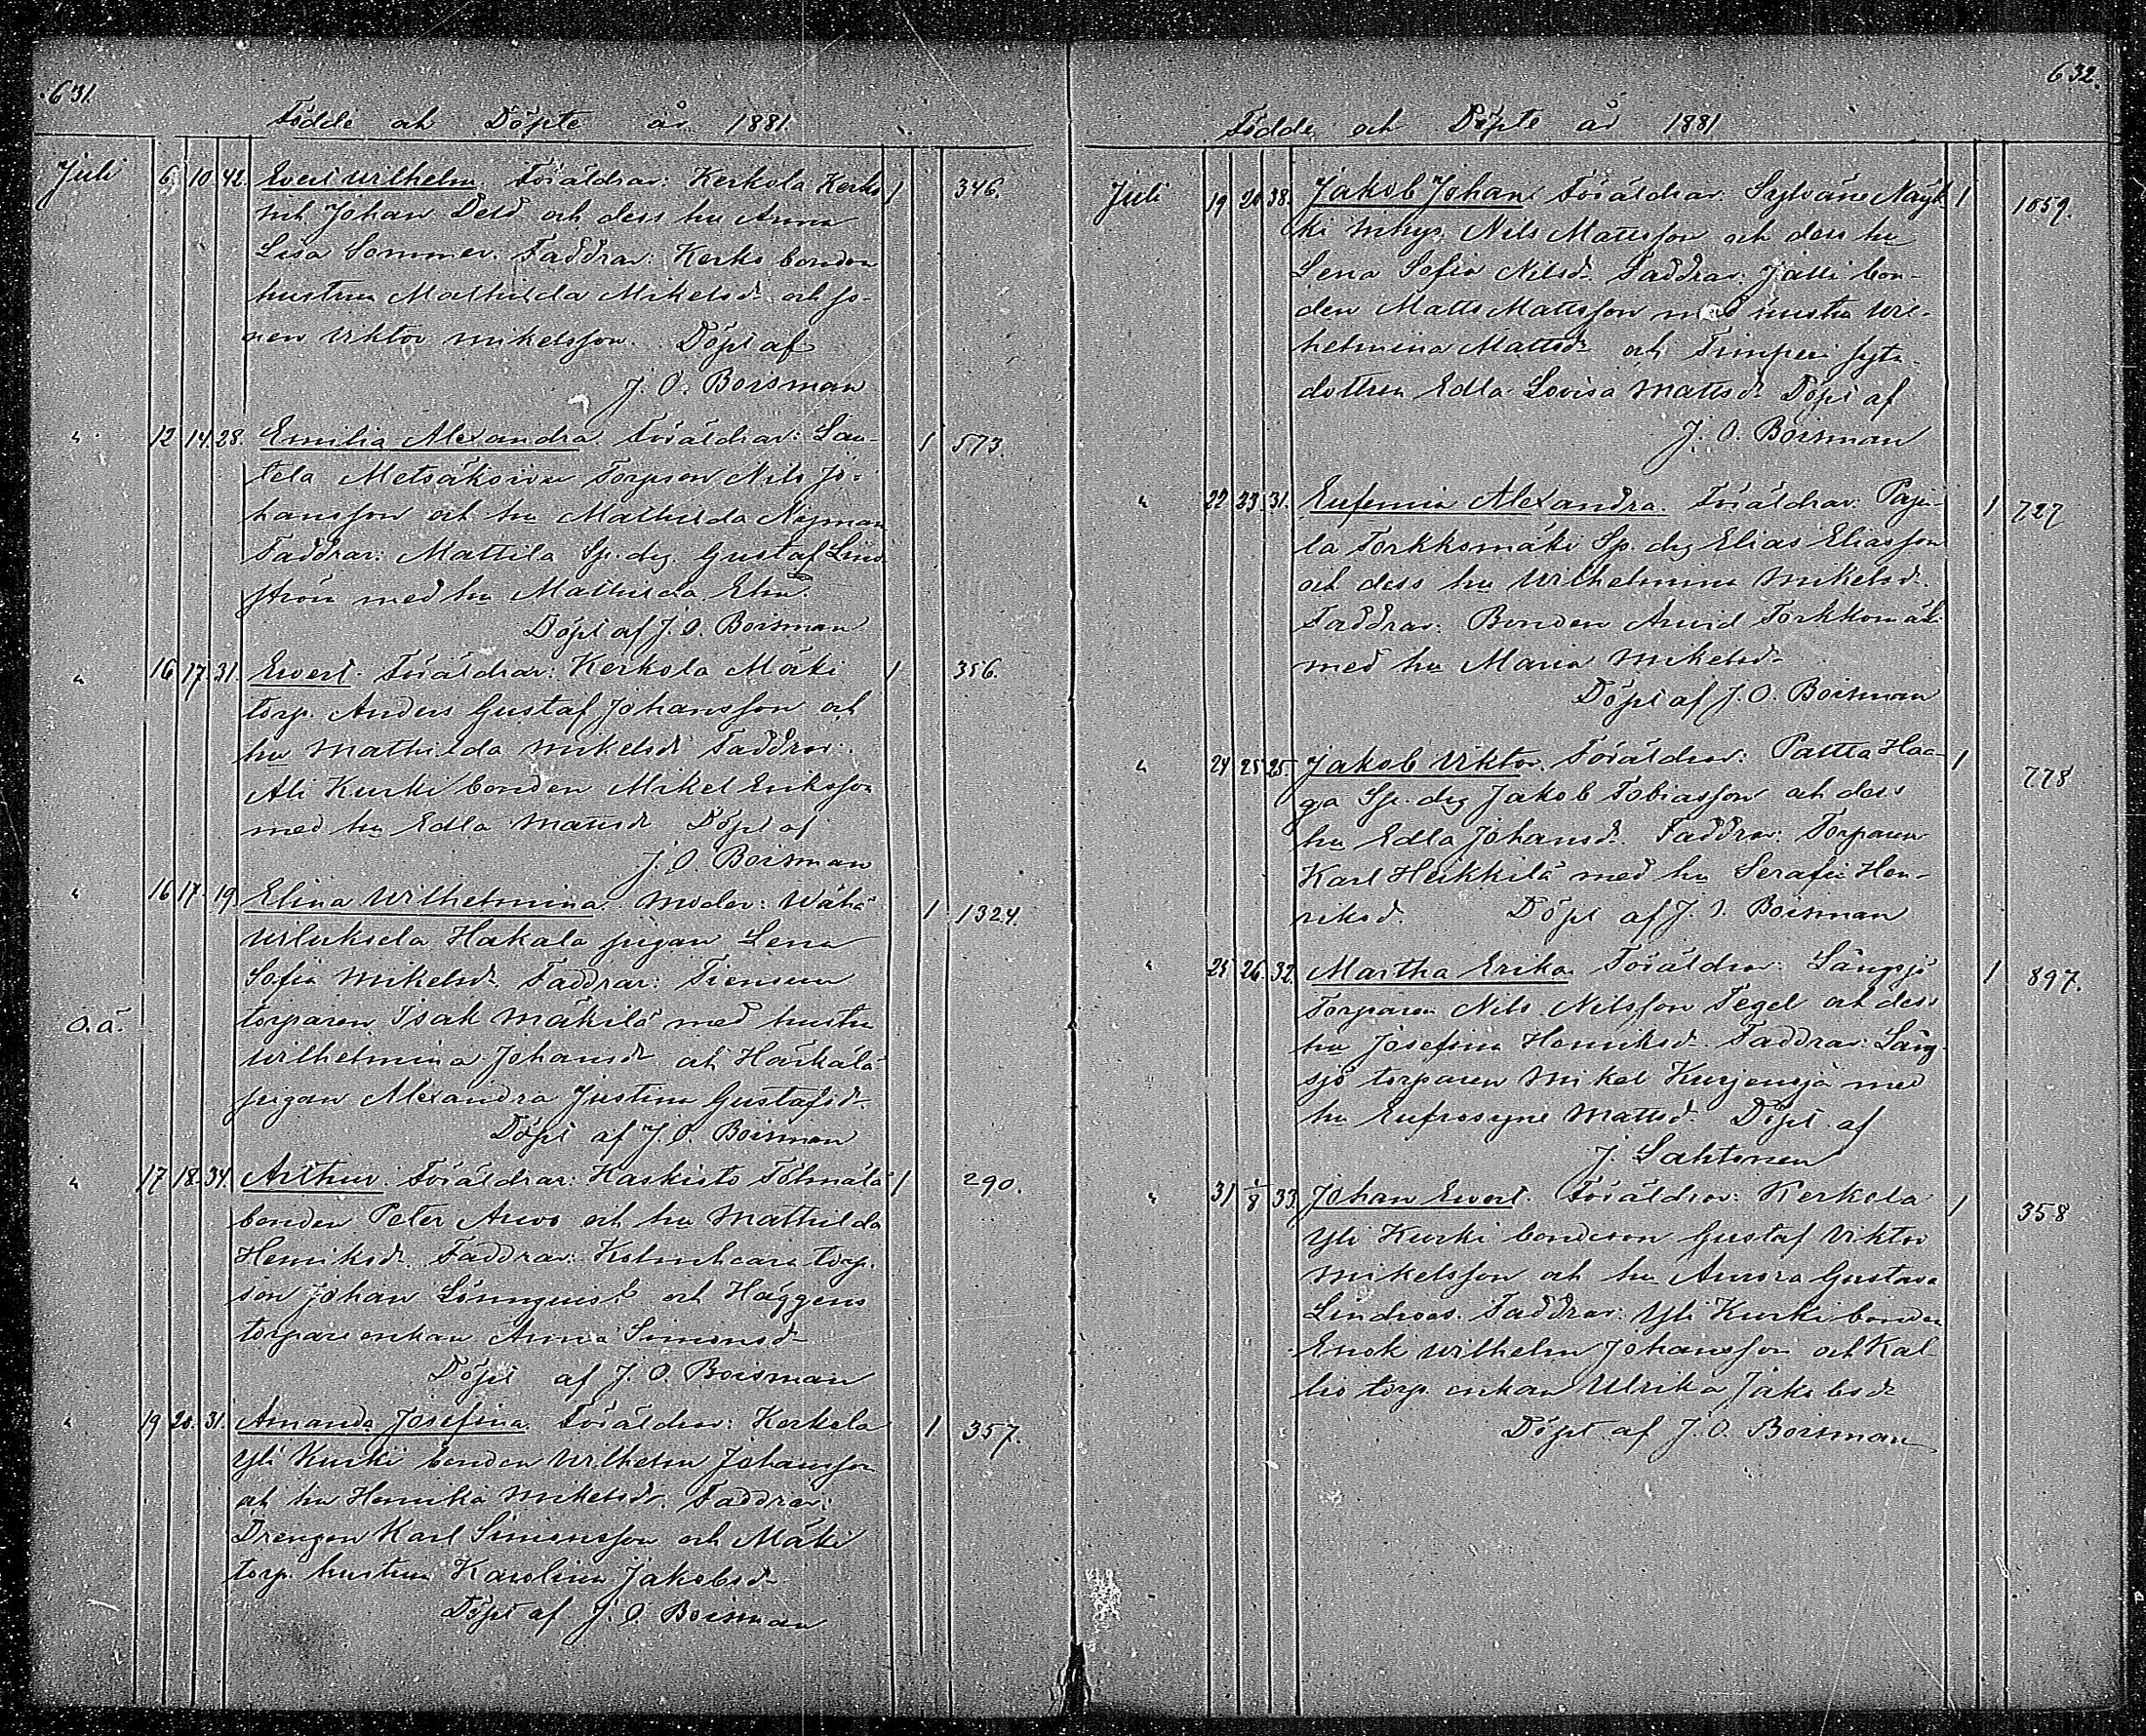 631.
Födde och Döpte år 1881.
Juli 6 10 42. Evert Wilhelm. Föräldrar: Kerkola Kerko 1 346.
inh. Johan Deld och dess hu Anna
Lisa Sommer. Faddrar: Kerko bonden
hustrun Mathilda Mikelsdr och so-
nen Viktor Mikelsson. Döpt af
J. O. Boisman
" 12 14 28. Emilia Alexandra. Föräldrar: Lau- 1 573.
tela Metsäkoivu Torpson Nils Jo-
hansson och hu Mathilda Nyman
Faddrar: Mattila Sp. drg. Gustaf Lind-
ström med hu Mathilda Elin
Döpt af J. O. Boisman
" 16 17. 31. Evert. Föräldrar: Kerkola Mäki 1 356.
torp. Anders Gustaf Johansson och
hu Mathilda Mikelsdr Faddrar:
Ali Kurki bonden Mikel Eriksson
med hu Edla Mattsdr Döpt af
J. O. Boisman
" 16 17. 19 Elina Wilhelmina. Moder: Wähä 1 1324.
Wiluksela Hakala pigan Lena
Sofia Mikelsdr. Faddrar: Tiensuu
O.ä. torparen Isak Mäkilä med hustru
Wilhelmina Johansdr och Härkälä
pigan Alexandra Justina Gustafsdr.
Döpt af J. O. Boisman
" 17 18. 34. Arthur. Föräldrar: Haskisto Tölmälä 1 290.
bonden Peter Arvo och hu Mathilda
Henriksdr. Faddrar: Kolmhaara torp.
son Johan Lönnquist och Häggens
torpare enkan Anna Simonsdr
Döpt af J. O. Boisman
" 19 20. 31. Amanda Josefina. Föräldrar: Kerkola 1 357.
Yli Kurki bonden Wilhelm Johansson
och hu Henrika Mikelsdr. Faddrar:
Drengen Karl Simonsson och Mäki
torp. hustrun Karolina Jakobsdr
Döpt af J. O. Boisman
632.
Födde och Döpte år 1881
Juli 19 20 38. Jakob Johan. Föräldrar: Sylvänä Näyk- 1 1859.
ki inhys. Nils Mattsson och dess hu
Lena Sofia Nilsdr. Faddrar: Jatti bon-
den Matts Mattsson med hustru Wil-
helmina Mattsdr och Timperi sytn.
dottren Edla Lovisa Mattsdr Döpt af
J. O. Boisman
" 22 23. 31. Eufemia Alexandra. Föräldrar: Paju- 1 727
la Torkkomäki Sp. drg Elias Eliasson
och dess hu Wilhelmina Mikelsdr.
Faddrar: Bonden Arvid Torkkomäki
med hu Maria Mikelsdr
Döpt af J. O. Boisman
" 24 25 25. Jakob Viktor. Föräldrar: Palttа Haa- 1 778
ga Sp. drg Jakob Tobiasson och dess
hu Edla Johansdr. Faddrar: Torparen
Karl Heikkilä med hu Serafia Hen-
riksd. Döpt af J. O. Boisman
" 25 26. 32. Martha Erika. Föräldrar: Långsjö 1 897.
Torparen Nils Nilsson Tegel och dess
hu Josefina Henriksdr. Faddrar: Lång-
sjö torparen Mikel Kurjensjä med
hu Eufrosyne Mattsd. Döpt af
J. Lahtonen
" 31 1/8 33. Johan Evert. Föräldrar: Kerkola 1 358
Yli Kurki bondeson Gustaf Viktor
Mikelsson och hu Aurora Gustava
Lindroos. Faddrar: Yli Kurki bonden
Enok Wilhelm Johansson och Kal-
lio torp. enkan Ulrika Jakobsdr
Döpt af J. O. Boisman